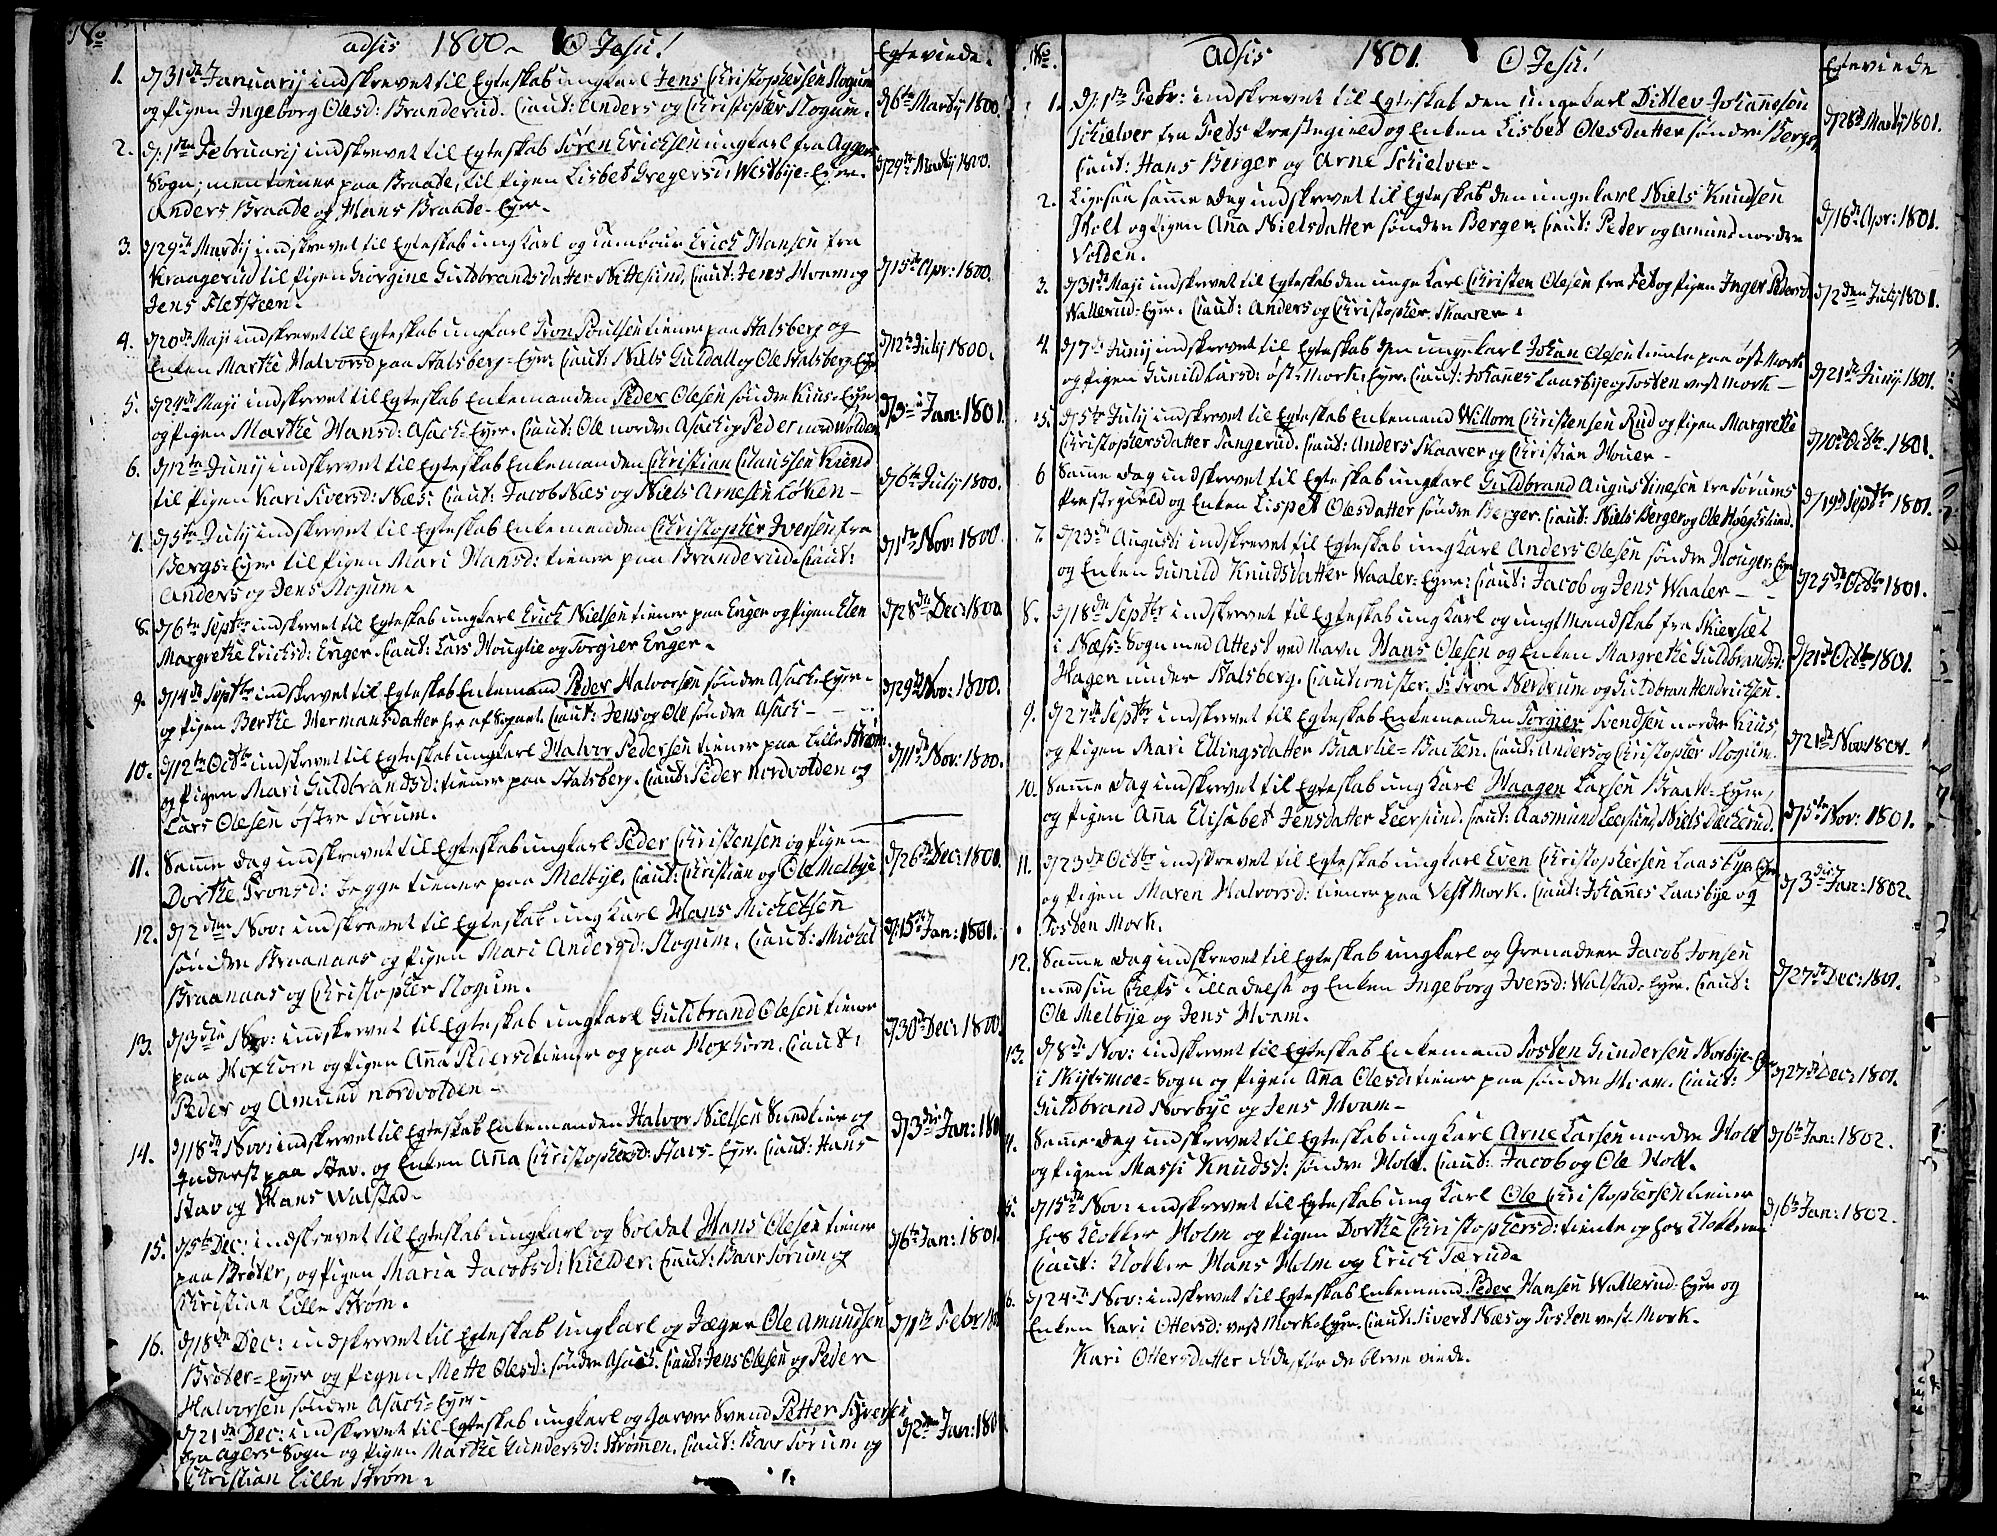 No adsis 1800 O Jesu! Egtevinde.
1. d 31te Januarij indskrevet til Egteskab ungkarl Jens Christophersen Slogum
og Pigen Ingeborg Olesd: Branderud. Caut: Anders og Christopher Slogum. d 6te Martij 1800.
2. d. 1ste Februarij indskrevet til Egteskab Søren Erichsen ungkarl fra Aggers
Sogn; men tiener paa Braate, til Pigen Lisbet Gregersd: Westbye-Eyer. d 29te Martij 1800.
Anders Braate og Hans Braate-Eyer.
3. d 29te Martij indskrevet til Egteskab ungkarl og Tambour Erich Hansen fra
Kraagerud til Pigen Giørgine Guldbrandsdatter Nittesund, Caut: Jens Hvam og d 15de Apr: 1800.
Jens Fletsteen.
4. d 20de Maji indskrevet til Egteskab ungkarl Tron Poulsen tiener paa Stalsberg og
Enken Marthe Halvorsd paa Stalsberg-Eyer. Caut: Niels Guldall og Ole Stalsberg-Eyer d 12te Julij 1800.
5. d 24de Maji indskrevet til Egteskab Enkemanden Peder Olesen søndre Kius-Eyer
og Pigen Marthe Hansd: Asach-Eyer. Caut: Ole nordre Asach og Peder nord Wolden d 9de Jan: 1801.
6. d 12te Junij indskrevet til Egteskab Enkemanden Christian Claussen Kiend
til Pigen Kari Siversd: Næs: Caut: Jacob Næs og Niels Arnesen Løken - d 6te July 1800.
7. d 5te July indskrevet til Egteskab Enkemanden Christopher Iversen fra
Bergs-Eyer til Pigen Mari Hansd: tiener paa Branderud. Caut: d 1ste Nov: 1800.
Anders og Jens Slogum.
8. d 6te Septbr indskrevet til Egteskab ungkarl Erich Nielsen tiener paa Enger og Pigen Elen
Margrethe Erichsd: Enger. Caut: Lars Houglie og Torgier Enger. d 28de Dec: 1800
9. d 14de Septbr indskrevet til Egteskab Enkemand Peder Halvorsen søndre Asach-Eyer
og Pigen Berthe Hermansdatter her af Sognet. Caut: Jens og Ole søndre Asach - d 29de Nov: 1800.
10. d 12te Octbr indskrevet til Egteskab ungkarl Halvor Pedersen tiener paa Lille Strøm
og Pigen Mari Guldbrandsd: tiener paa Stalsberg. Caut: Peder Nordvolden og d 11te Nov: 1800.
Lars Olesen østre Sørum.
11. Samme dag indskrevet til Egteskab ungkarl Peder Christensen og Pigen
Dorthe Tronsd: begge tiener paa Melbye. Caut: Christian og Ole Melbye d 26de Dec: 1800.
12. d 2den Nov: indskrevet til Egteskab ungkarl Hans Michelsen
søndre Braanaas og Pigen Mari Andersd: Slogum. Caut: Michel d: 15de Jan: 1801.
Braanaas og Christopher Slogum.
13. d 3die Nov: indskrevet til Egteskab ungkarl Guldbrand Olesen tiener
paa Hoxhorn og Pigen Anna Pedersd tiener og paa Hoxhorn. Caut: d 30te Dec: 1800.
Peder og Amund nordvolden -
14. d 18de Nov: indskrevet til Egteskab Enkemanden Halvor Nielsen Sund tiener og
Inderst paa Stav. og Enken Anna Christophersd: Stavs-Eyer. Caut: Hans d 3die Jan: 180
Stav og Hans Walstad.
15. d 5te Dec: indskrevet til Egteskab ungkarl og Soldat Hans Olesen tiener
paa Brøter, og Pigen Maria Jacobsd: Kielder: Caut: Baar Sørum og d 6te Jan: 1801.
Christian Lille Strøm.
16. d 18de Dec: indskrevet til Egteskab ungkarl og Jæger Ole Amundsen
Brøter-Eyer og Pigen Mette Olesd: søndre Asach. Caut: Jens Olesen og Peder d 1ste Febr 180
Halvorsen søndre Asach-Eyer.
d 21de Dec: indskrevet til Egteskab ungkarl og Garver Svend Petter Syversen
fra Agers Sogn og Pigen Marthe Gundersd: Strømmen. Caut: Baar Sørum og d 2den Jan: 180
Christian Lille Strøm.
No. Adsis 1801. O Jesu! Egtevinde
1. d. 1ste Febr: indskrevet til Egteskab den unge karl Ditlev Johannesen
Schielver fra Fets Prestegield og Enken Lisbet Olesdatter søndre Berger, d 28de Martij 1801.
Caut: Hans Berger og Arne Schielver.
2. Ligesaa samme dag indskrevet til Egteskab den unge karl Niels Knudsen
Holt og Pigen Anna Nielsdatter søndre Berger. Caut: Peder og Amund nordre d 16de Apr: 1801.
Volden.
3. d 31te Maji indskrevet til Egteskab den unge karl Christen Olesen fra Fet og Pigen Inger Pedersd
Wallerud-Eyer. Caut: Anders og Christopher Skaarer. d 2den July 1801.
4. d 7de Junij indskrevet til Egteskab den unge karl Johan Olesen tiente paa øst Mork
og Pigen Gunild Larsd: øst-Mork-Eyer. Caut: Johannes Laasbye og Tosten vest mork - d 21de Junij 1801.
5. d 5te July indskrevet til Egteskab Enkemand Willom Christensen Rud og Pigen Margrethe
Christophersdatter Tangerud. Caut: Anders Skaarer og Christian Houer - d 10de Octbr 1801.
6 Samme dag indskrevet til Egteskab ungkarl Guldbrand Augustinesen fra Sørums
Prestegield og Enken Lispet Olesdatter søndre Berger. Caut: Niels Berger og Ole d 19de Septbr 1801.
7. d 23de Augusti indskrevet til Egteskab ungkarl Anders Olesen søndre Houger-Eyer
og Enken Gunild Knudsdatter Waaler-Eyer: Caut: Jacob og Jens Waaler - d 25de Octbr 1801.
8. d 18de Septbr indskrevet til Egteskab ungkarl og ungt Mandskab fra Skierset
i Næss-Sogn med Attest ved Navn Hans Olesen og Enken Margrethe Guldbrandsd: d 21de Octbr 1801.
Hagen under Stalsberg. Cautionister. Sr Tron Nerdrum og Guldbran Hendrichsen.
9. d 27de Septbr indskrevet til Egteskab Enkemanden Torgier Svendsen nordre Kius,
og Pigen Mari Ellingsdatter Bharlie-Bachen. Caut: Anders og Christopher Slogum. d 21de Nov 1801.
10. Samme dag indskrevet til Egteskab ungkarl Haagen Larsen Braate-Eyer,
og Pigen Anna Elisabet Jensdatter Leersund. Caut: Aasmund Leersund, Niels Dacherud. d 5te Nov: 1801.
11. d 23de Octbr indskrevet til Egteskab ungkarl Even Christophersen Laasbye-Eyer
og Pigen Maren Halvorsd: tiener paa Vest Mork. Caut: Johannes Laasbye og d 3die Jan: 1802.
Tosten Mork.
12. Samme dag indskrevet til Egteskab ungkarl og Grenadeer Jacob Jonsen
med sin Chefs Tilladelse og Enken Ingeborg Iversd: Walstad-Eyer. Caut: d 27de Dec: 1801.
Ole Melbye og Jens Hvam.
13. d 8de Nov: indskrevet til Egteskab Enkemand Tosten Gundersen Norbye-Eyer
i Skydsmoe-Sogn og Pigen Anna Olesd: tiener paa søndre Hvam. Caut: d 27de Dec: 1801.
Guldbrand Norbye og Jens Hvam -
4. Samme dag indskrevet til Egteskab ungkarl Arne Larsen nordre Holt d 6te Jan: 1802.
og Pigen Massi Knudsd: søndre Holt. Caut: Jacob og Ole Holt.
5. d 15de Nov: indskrevet til Egteskab ungkarl Ole Christophersen tiener
hos Klokker Holm og Pigen Dorthe Christophersd: tiente og hos Klokkeren d 6te Jan: 1802.
Caut: Klokker Hans Holm og Erich Tærud.
6. d 24de Nov: indskrevet til Egteskab Enkemand Peder Hansen Wallerud-Eyer og
Enken Kari Ottersd: vest Mork-Eyer. Caut: Sivert Næs og Tosten vest-Mork.
Kari Ottersdatter døde, før de bleve viede.